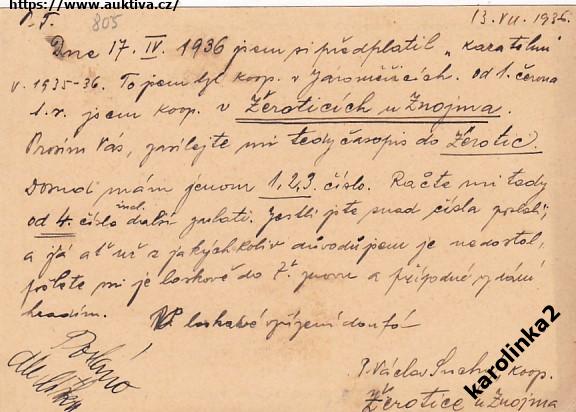 https://www.auktiva.cz/
P.T. 805 13. VII. 1936.
Dne 17. IV. 1936 jsem si předplatil „
v. 1935-36. To jsem byl koop. v Jaroměřicích. Od 1. června
t.r. jsem koop. v Žeroticích u Znojma.
Prosím Vás, zasílejte mi tedy časopis do Žerotic.
Domodi mám jenom 1, 2, 3. číslo. Račte mi tedy
od 4. čísla incl. další zaslati. Jestli jste snad čísla poslali,
a já ať už z jakýchkoliv důvodů jsem je nedostal,
pošlete mi je laskavě do 7. znovu a případné vydání
hradím. V laskavé vyřízení doufá
P. Václav koop.
Žerotice u Znojma
karolinka2